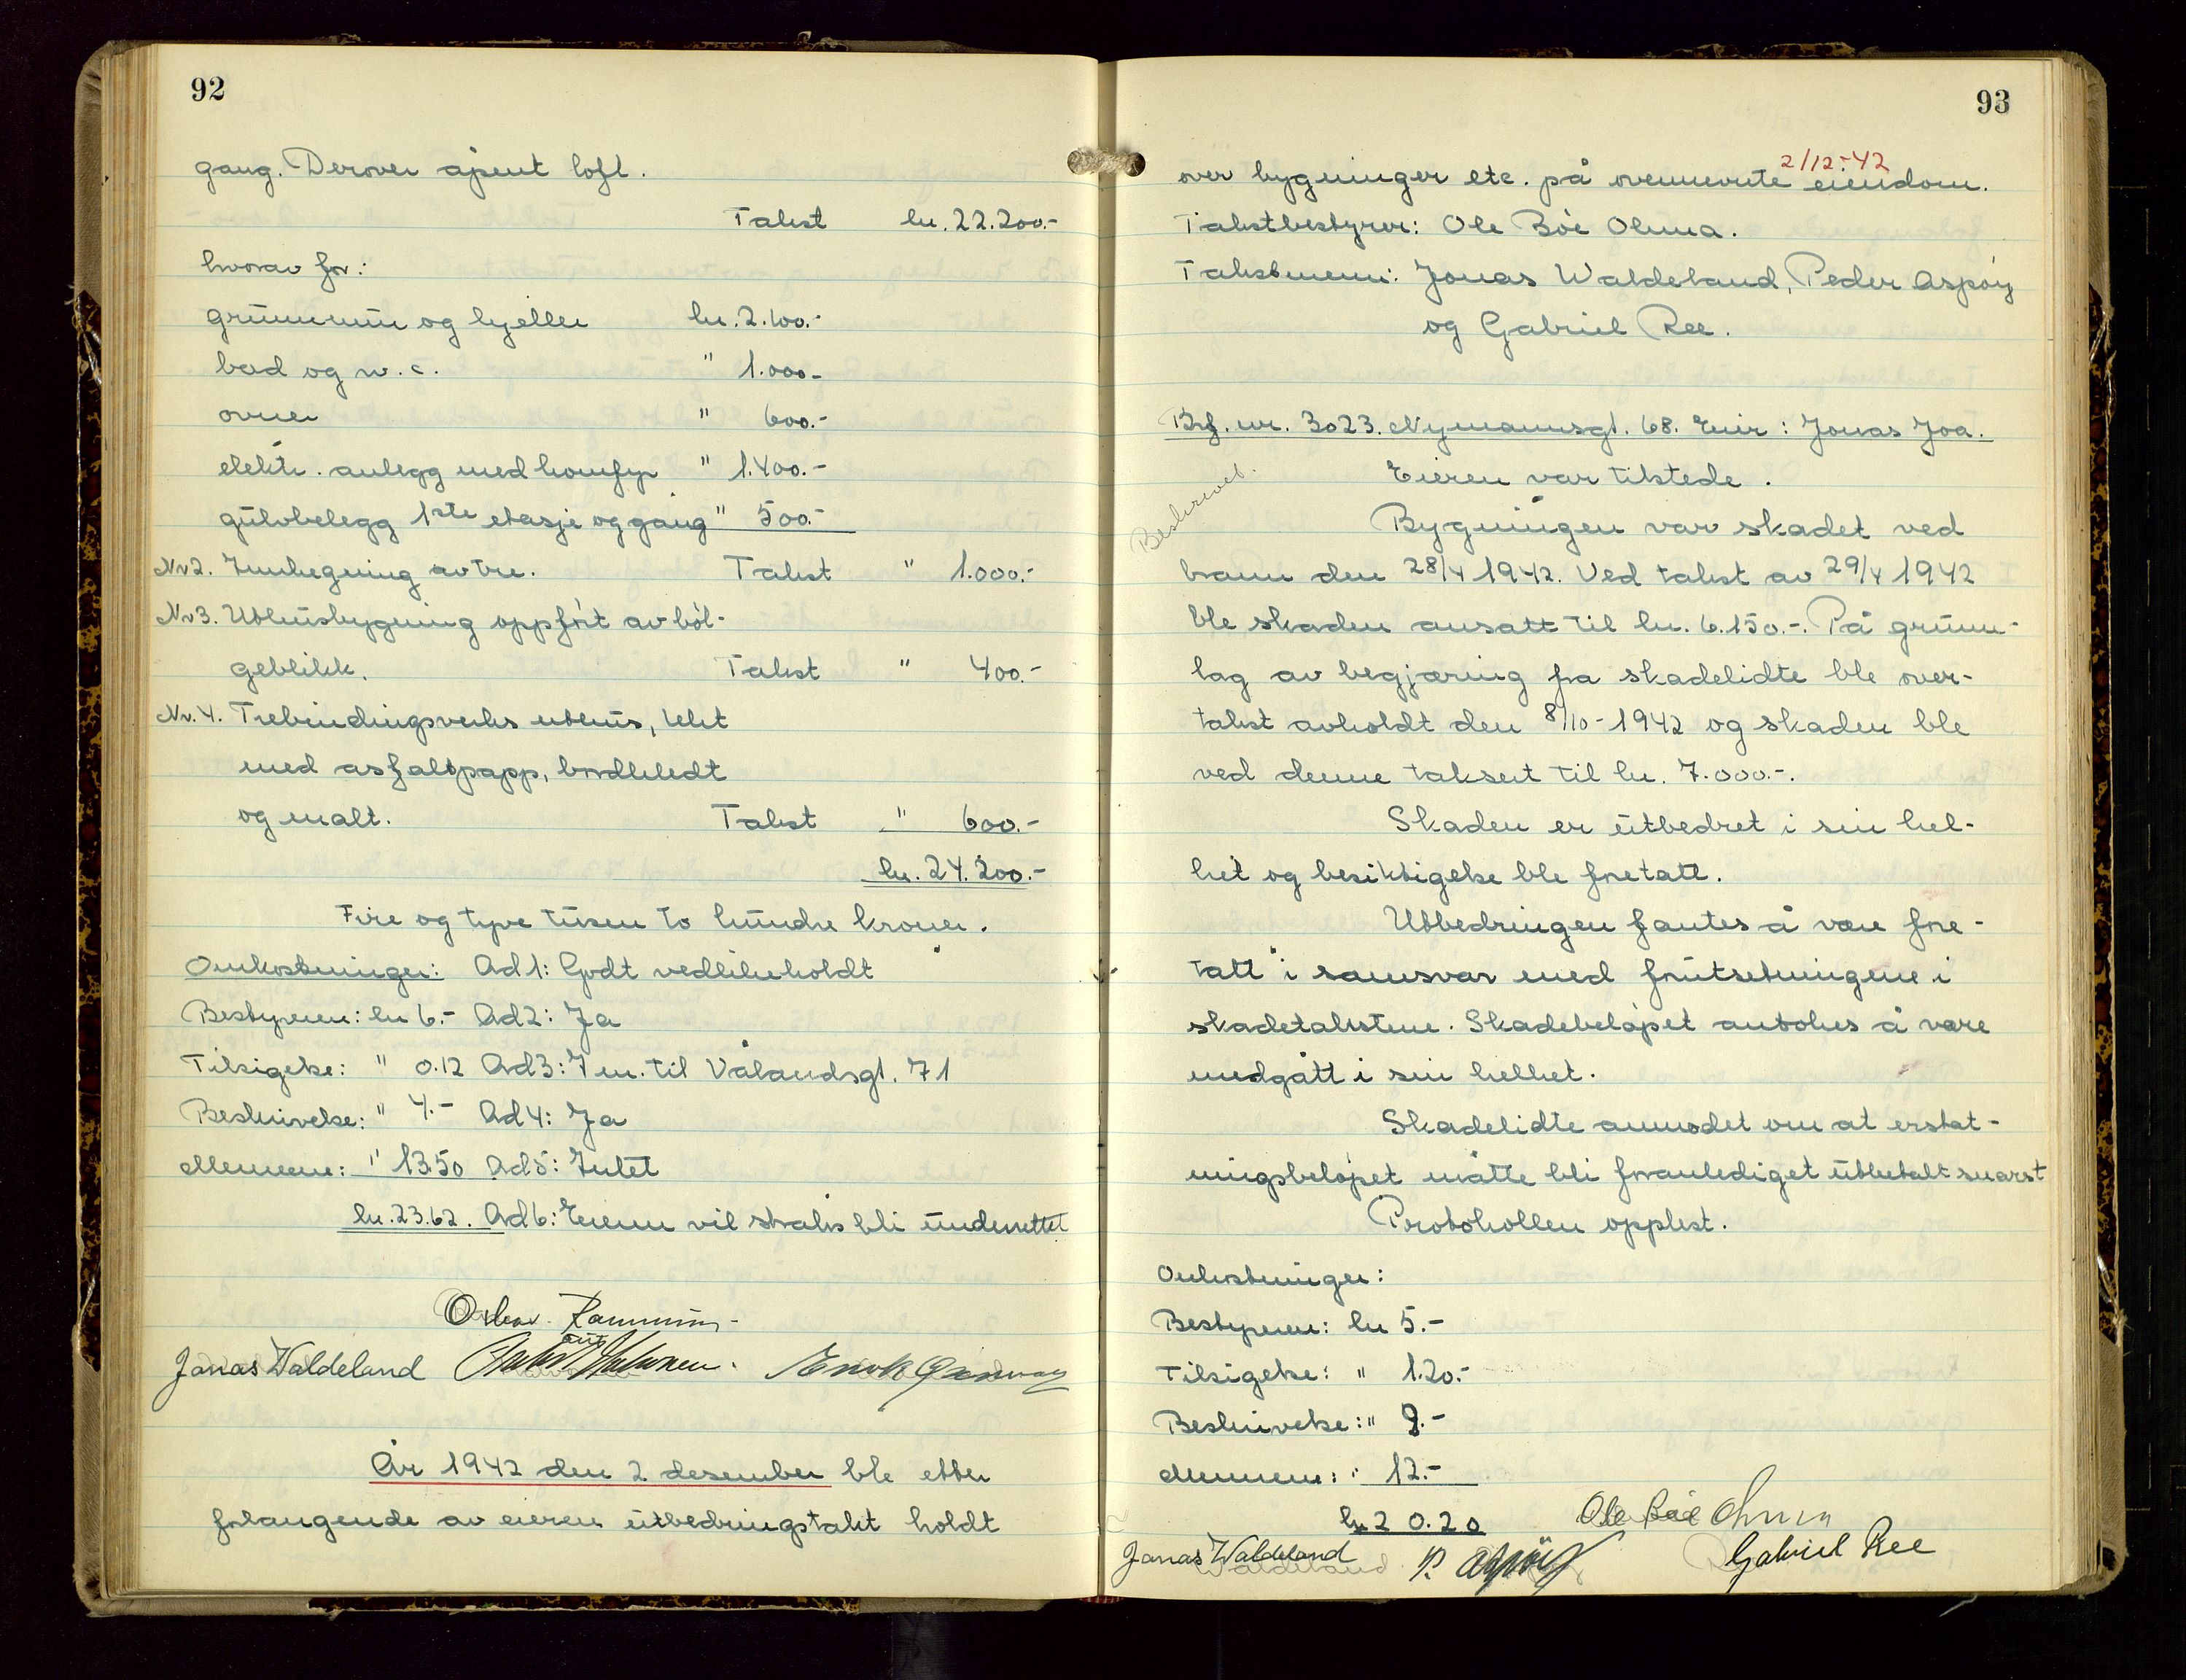 92
gang. Derover åpent loft.
Takst kr. 22.200.-
hvorav for:
grunnmur og kjeller kr. 2.100.-
bad og w.c. " 1.000.-
ovner " 600.-
elektr. anlegg med komfyr " 1.400.-
gulvbelegg 1ste etasje og gang " 500.-
Nr 2. Innhegning av tre. Takst " 1.000.-
Nr 3. Uthusbygning oppført av böl-
geblikk. Takst " 400.-
Nr. 4. Trebindingsverks uthus, tekt
med asfaltpapp, bordkledt
og malt. Takst " 600.-
kr. 24.200.-
Fire og tyve tusen to hundre kroner.
Omkostninger: Ad 1: Godt vedlikeholdt
Bestyreren: kr 6.- Ad 2: Ja
Tilsigelse: " 0.12 Ad 3: 7 m. til Vålandsgt. 71
Beskrivelse: " 4.- Ad 4: Ja
Mennene: " 13.50 Ad 5: Intet
kr. 23.62. Ad 6: Eieren vil straks bli underrettet
Jonas Waldeland
År 1942 den 2 desember ble etter
forlangende av eieren utbedringstakst holdt
93
2/12-42
over bygninger etc. på ovennevnte eiendom.
Takstbestyrer: Ole Böe Olsma.
Takstmenn: Jonas Waldeland, Peder Aspöy
og Gabriel Ree.
Brf. nr. 3023. Nymannsgt. 68. Eier: Jonas Joa.
Beskrevet.
Eieren var tilstede.
Bygningen var skadet ved
brann den 28/4 1942. Ved takst av 29/4 1942
ble skaden ansatt til kr. 6.150.-. På grunn-
lag av begjæring fra skadelidte ble over-
takst avholdt den 8/10-1942 og skaden ble
ved denne taksert til kr. 7.000.-.
Skaden er utbedret i sin hel-
het og besiktigelse ble foretatt.
Utbedringen fantes å være fore-
tatt i samsvar med forutsetningene i
skadetakstene. Skadebelöpet antokes å være
medgått i sin helhet.
Skadelidte anmodet om at erstat-
ningsbelöpet måtte bli foranlediget utbetalt snarst
Protokollen opplest.
Omkostninger:
Bestyreren: kr 5.-
Tilsigelse: " 1.20.-
Beskrivelse: " 2.-
Mennene: " 12.-
kr 20.20
Jonas Waldeland P. Aspöy Gabriel Ree